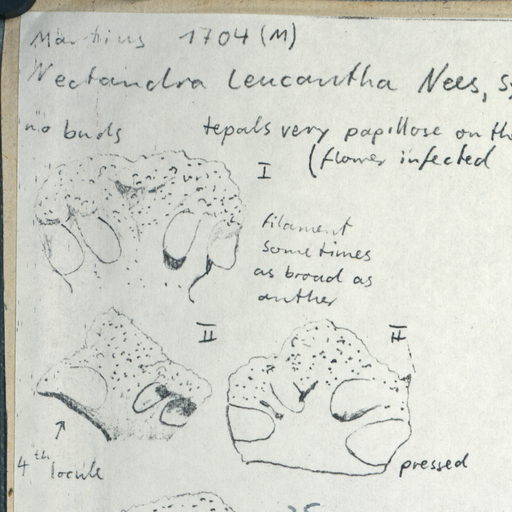 Martius 1704 (M)
Nectandra leucantha Nees, sy
no buds tepals very papillose on th
(flower infected
I
filament
sometimes
as broad as
anther
II
II
4th locule
pressed